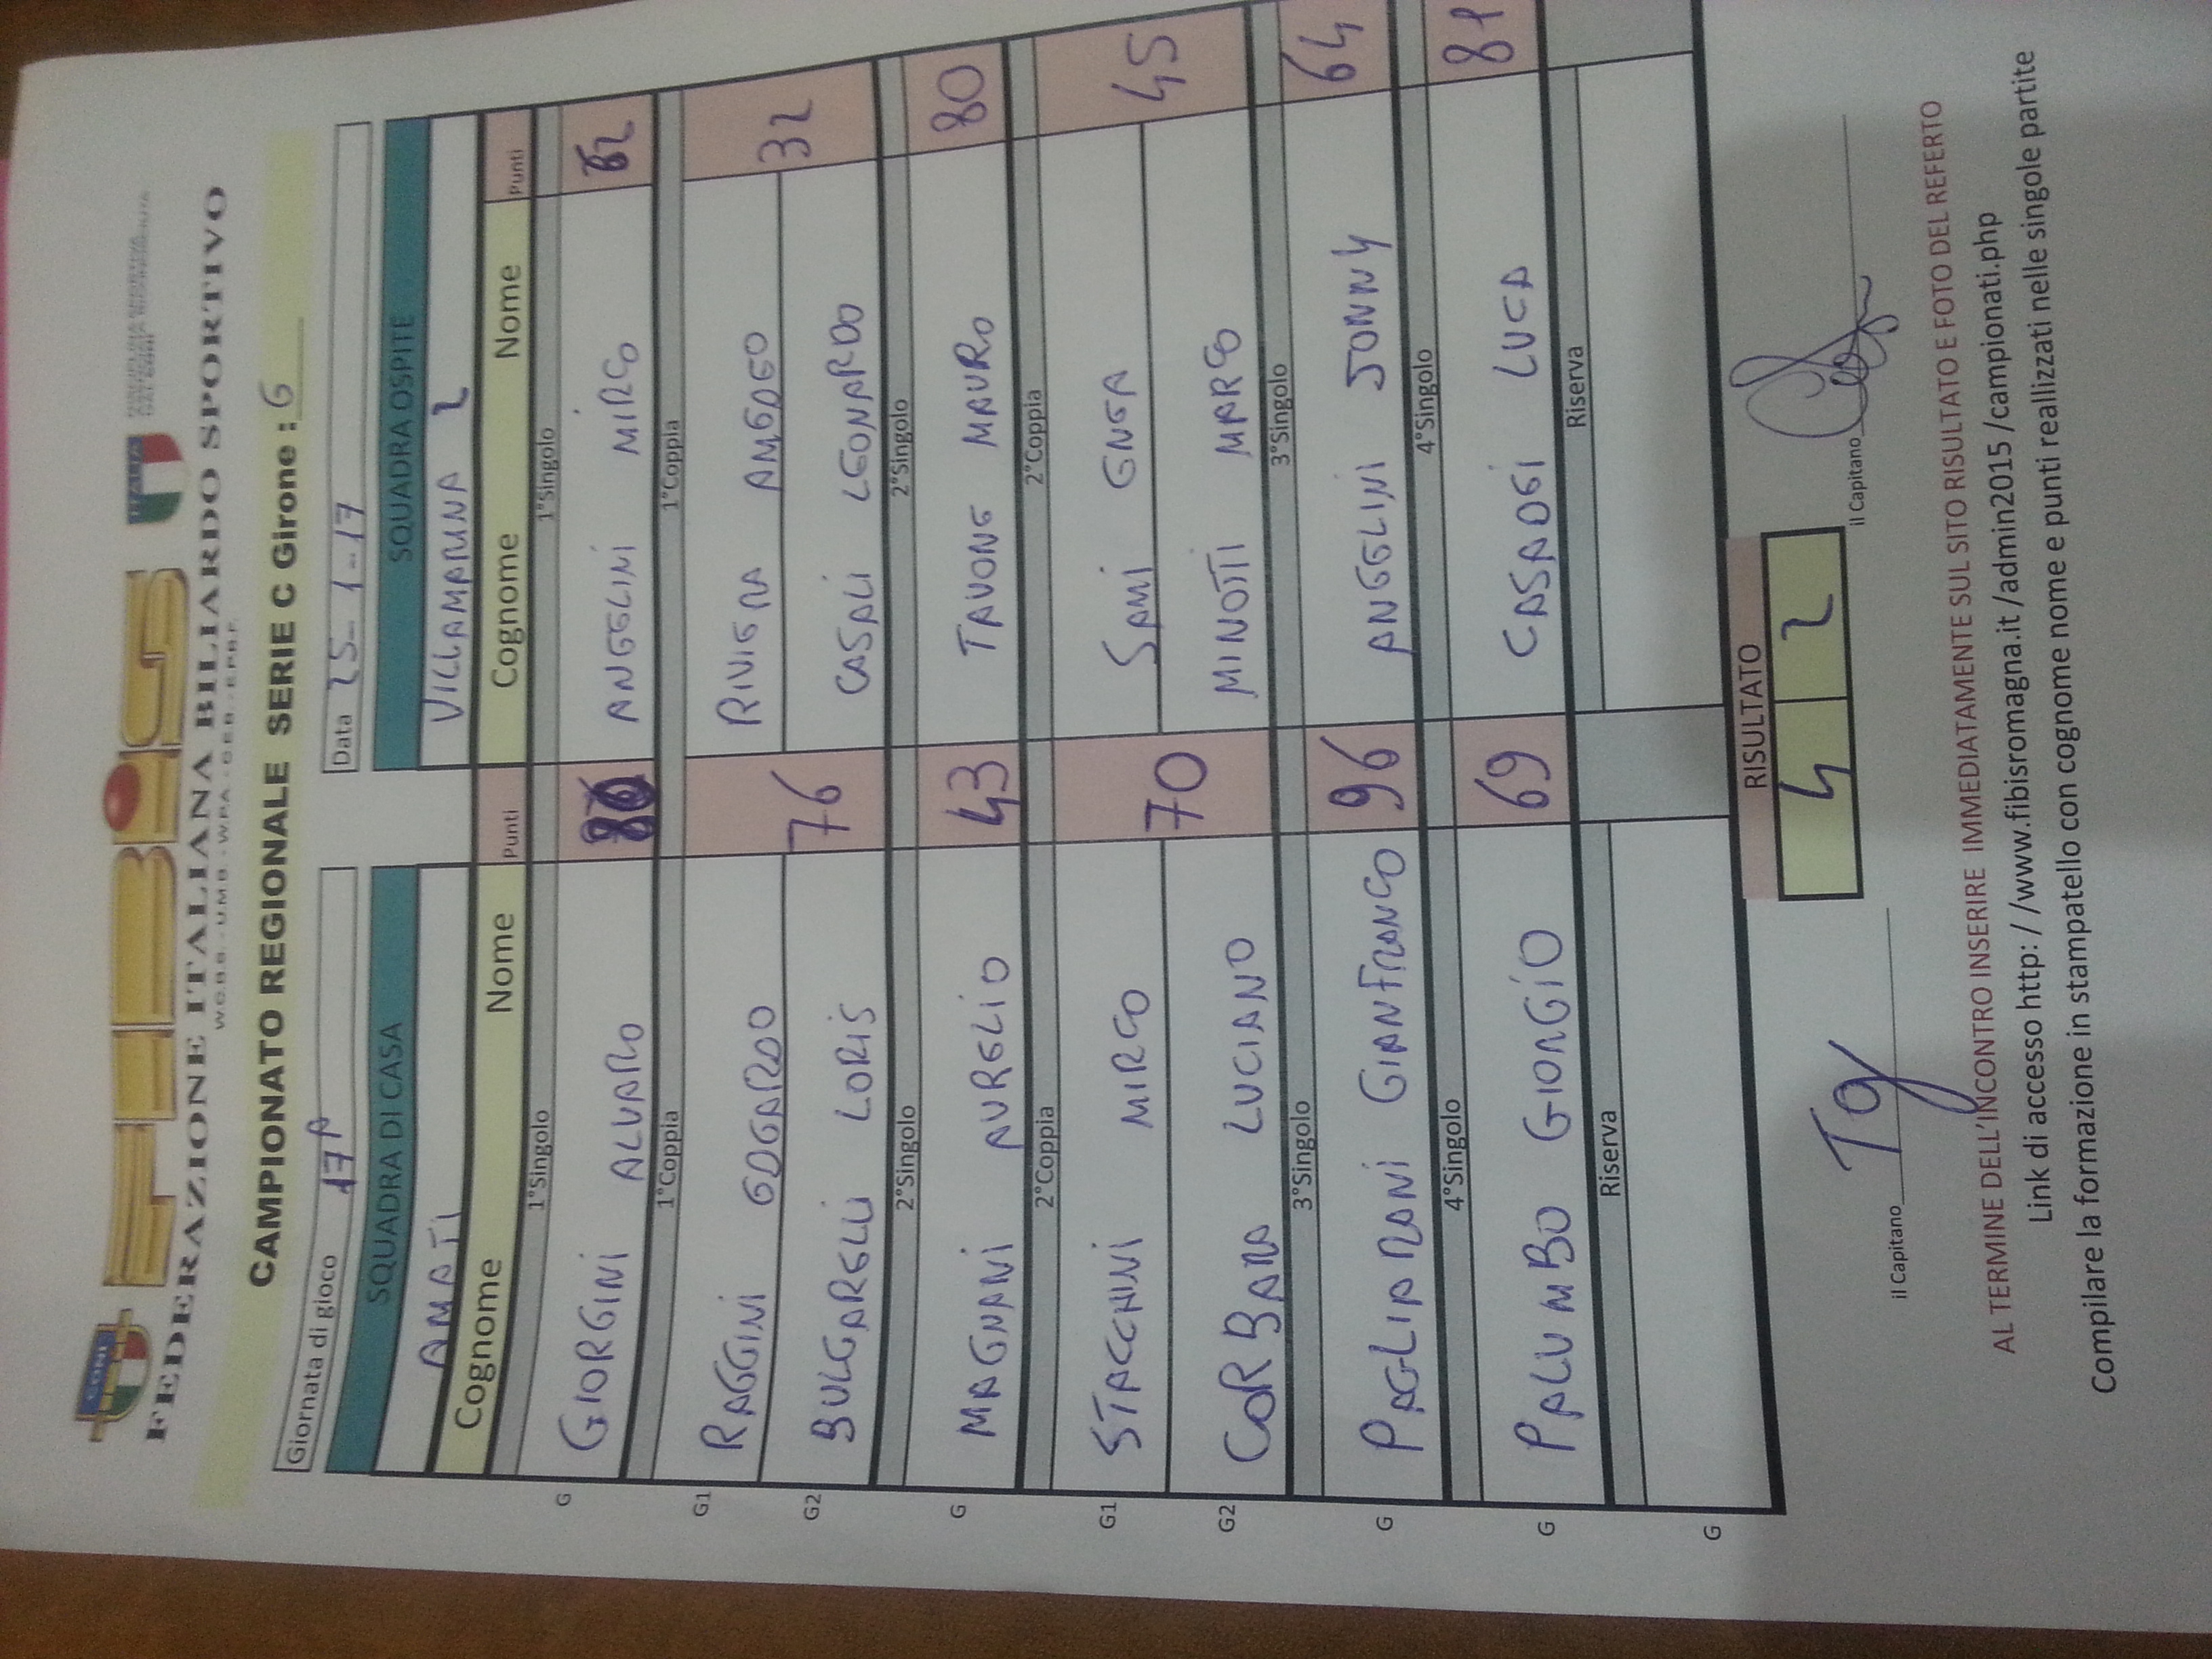 CONI
FIBiS
ITALIA
FEDERAZIONE ITALIANA BILIARDO SPORTIVO
W.C.B.S. - U.M.B. - W.P.A. - C.E.B. - E.P.B.F.
CAMPIONATO REGIONALE SERIE C Girone : G
Giornata di gioco 17A
Data 25-1-17
SQUADRA DI CASA SQUADRA OSPITE
AMATI VILLAMARINA 2
Cognome Nome Punti Cognome Nome Punti
1°Singolo 1°Singolo
G GIORGINI ALVARO ANGELINI MIRCO
1°Coppia 1°Coppia
G1 RAGGINI EDGARDO 76 RIVIERA AMEDEO 32
G2 BULGARELLI LORIS CASALI LEONARDO
2°Singolo 2°Singolo
G MAGNANI AURELIO 43 TAVONE MAURO 80
2°Coppia 2°Coppia
G1 STACCHINI MIRCO 70 SAMI ENEA 45
G2 CORBARA LUCIANO MINOTTI MARCO
3°Singolo 3°Singolo
G PAGLIARANI GIANFRANCO 96 ANGELINI JONNY 64
4°Singolo 4°Singolo
G PALUMBO GIORGIO 69 CASADEI LUCA 81
Riserva Riserva
G
RISULTATO
4 2
il Capitano il Capitano
AL TERMINE DELL'INCONTRO INSERIRE IMMEDIATAMENTE SUL SITO RISULTATO E FOTO DEL REFERTO
Link di accesso http: / /www.fibisromagna.it /admin2015 /campionati.php
Compilare la formazione in stampatello con cognome nome e punti reallizzati nelle singole partite